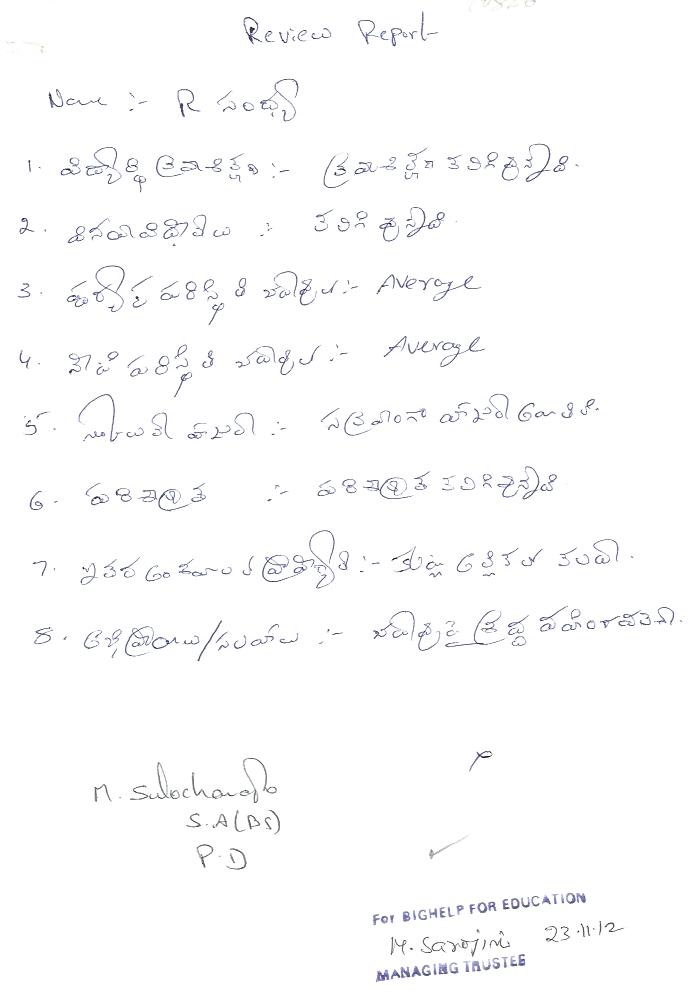 Review Report
Name :- R సంధ్యా
1. విద్యార్థి క్రమశిక్షణ :- క్రమశిక్షణ కలిగివున్నాడి.
2. వినయవిధేతలు :- కలిగి వున్నాడి.
3. పూర్వపు పరిస్థితి చదువుల :- Average
4. నేటి పరిస్థితి చదువుల :- Average
5. స్కూలుకు హాజరు :- సక్రమంగా హాజరు అవుతుంది.
6. పరిశుభ్రత :- పరిశుభ్రత కలిగివున్నాడి
7. ఇతర అంశాలలో ప్రావీణ్యత :- కుట్లు అల్లికలు కలవు.
8. అభిప్రాయాలు/సలహాలు :- చదువుపై శ్రద్ధ వహించవలెను.
M. Sulochana
S.A (BS)
P.D
For BIGHELP FOR EDUCATION
M. Sarojini 23.11.12
MANAGING TRUSTEE